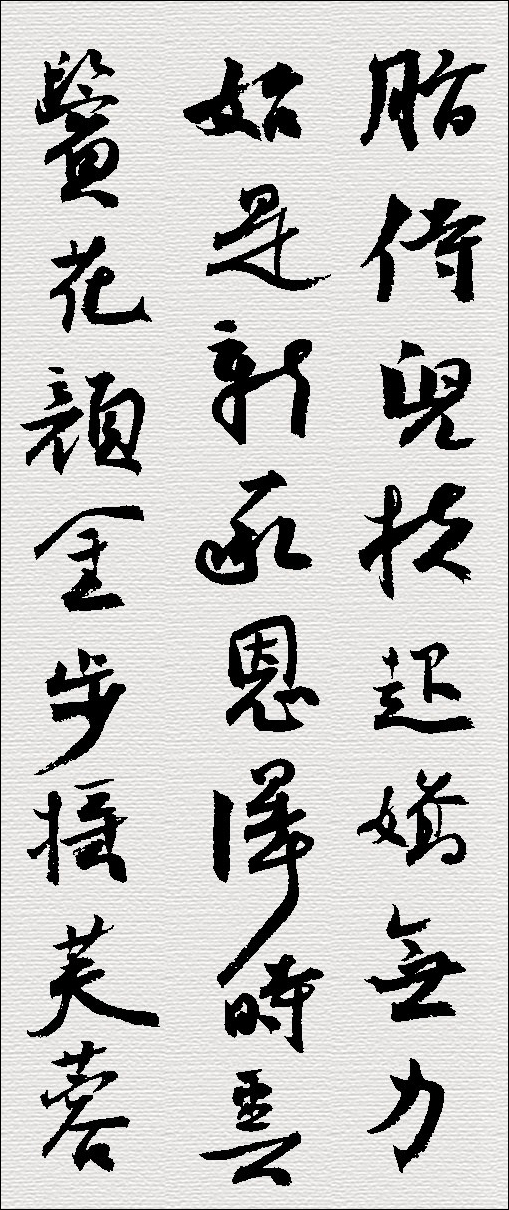 脂侍兒扶起嬌無力
始是新承恩澤時雲
鬢花顏金步搖芙蓉